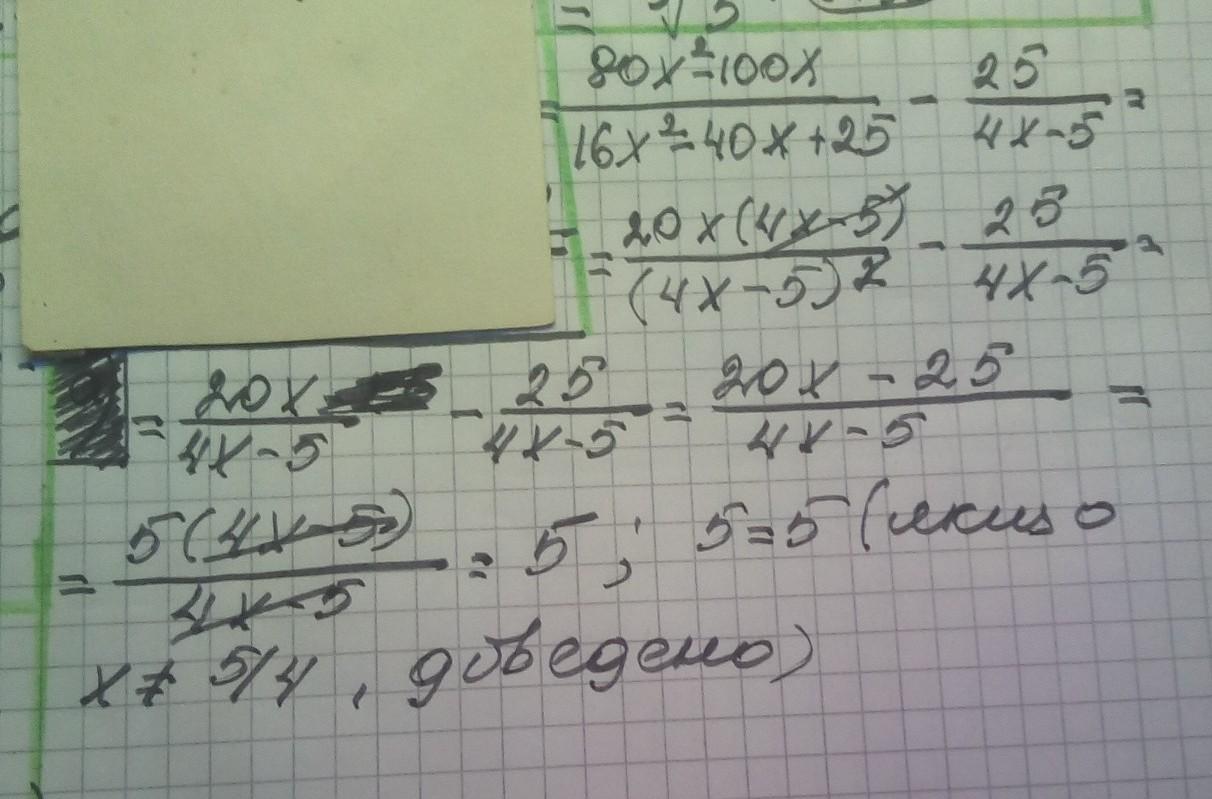 = √5
= 80x²-100x / 16x²-40x+25 - 25 / 4x-5 =
= = 20x(4x-5) / (4x-5)² - 25 / 4x-5 =
= 20x / 4x-5 - 25 / 4x-5 = 20x-25 / 4x-5 =
= 5(4x-5) / 4x-5 = 5; 5=5 (якщо
x≠ 5/4, доведено)